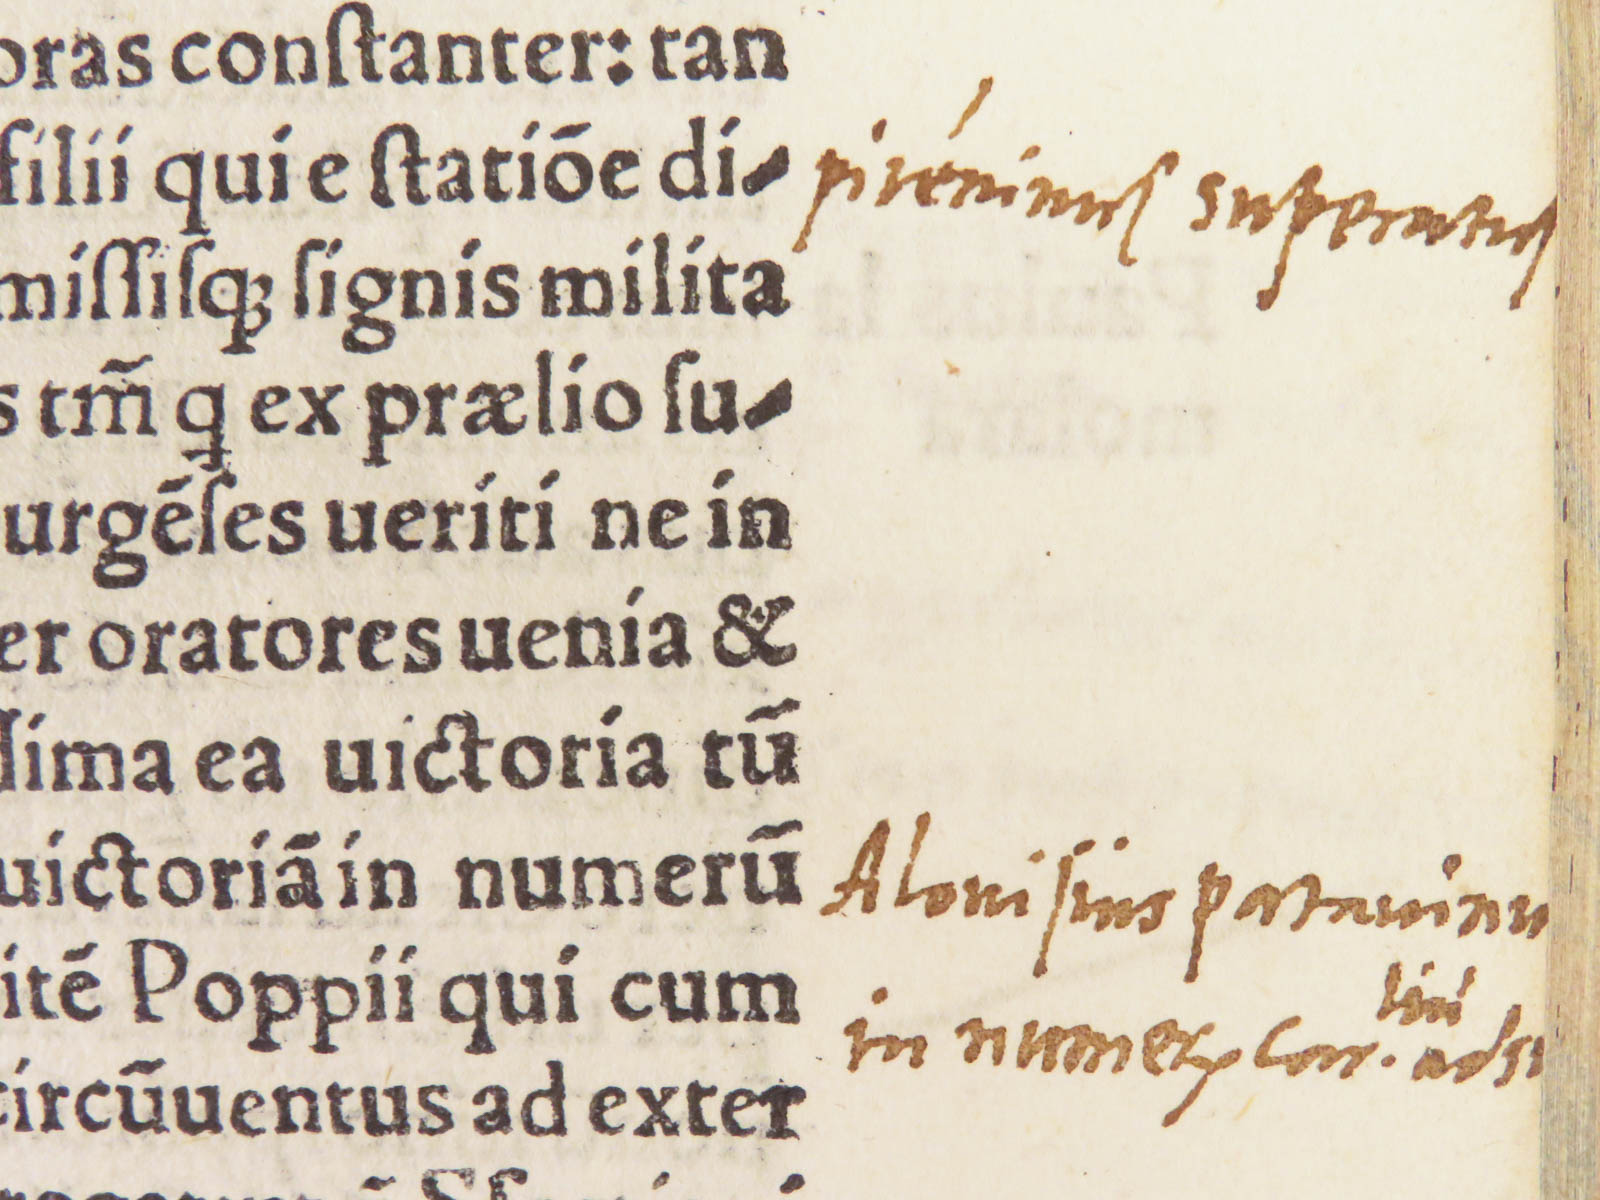 oras conſtanter: tan
filii qui e ſtatiōe di-
miſſiſqꝫ ſignis milita
s tm̄ q ex prælio ſu-
urgēſes ueriti ne in
er oratores uenia &
ſima ea uictoria tū
uictoriā in numerū
itē Poppii qui cum
circūuentus ad exter
piréninuſ superatus
Alouiſius patauinu
in numerꝝ Car. liii adſ